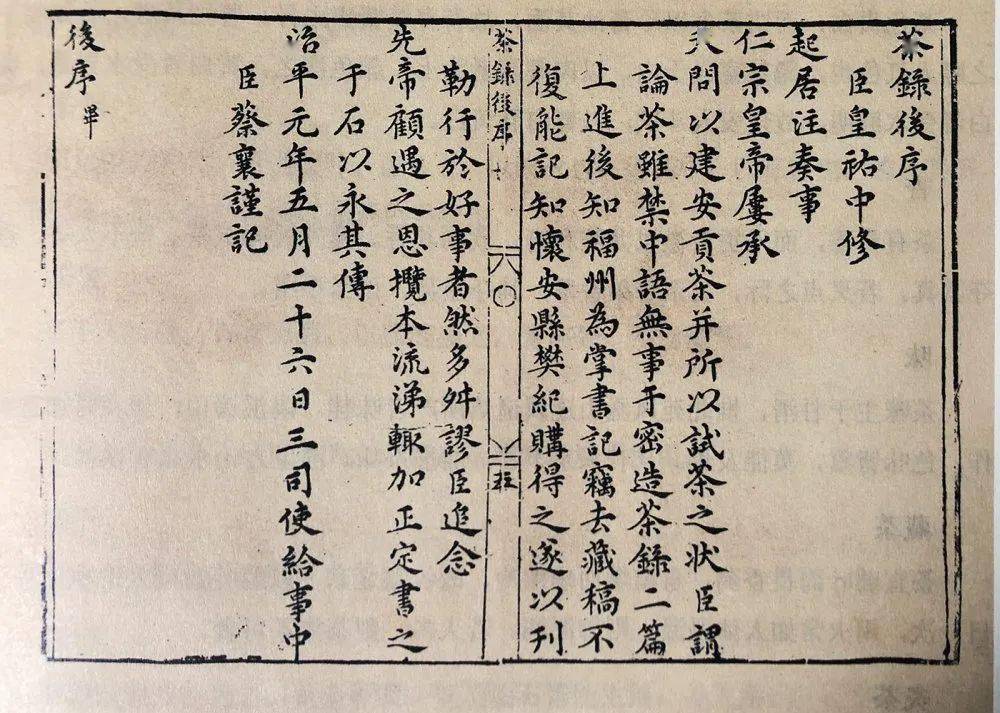 茶錄後序
臣皇祐中修
起居注奏事
仁宗皇帝屢承
天問以建安貢茶并所以試茶之狀臣謂
論茶雖禁中語無事于密造茶錄二篇
上進後知福州為掌書記竊去藏稿不
復能記知懷安縣樊紀購得之遂以刋
茶錄後序
六
勒行於好事者然多舛謬臣追念
先帝顧遇之恩攬本流涕輙加正定書之
于石以永其傳
治平元年五月二十六日三司使給事中
臣蔡襄謹記
後序畢